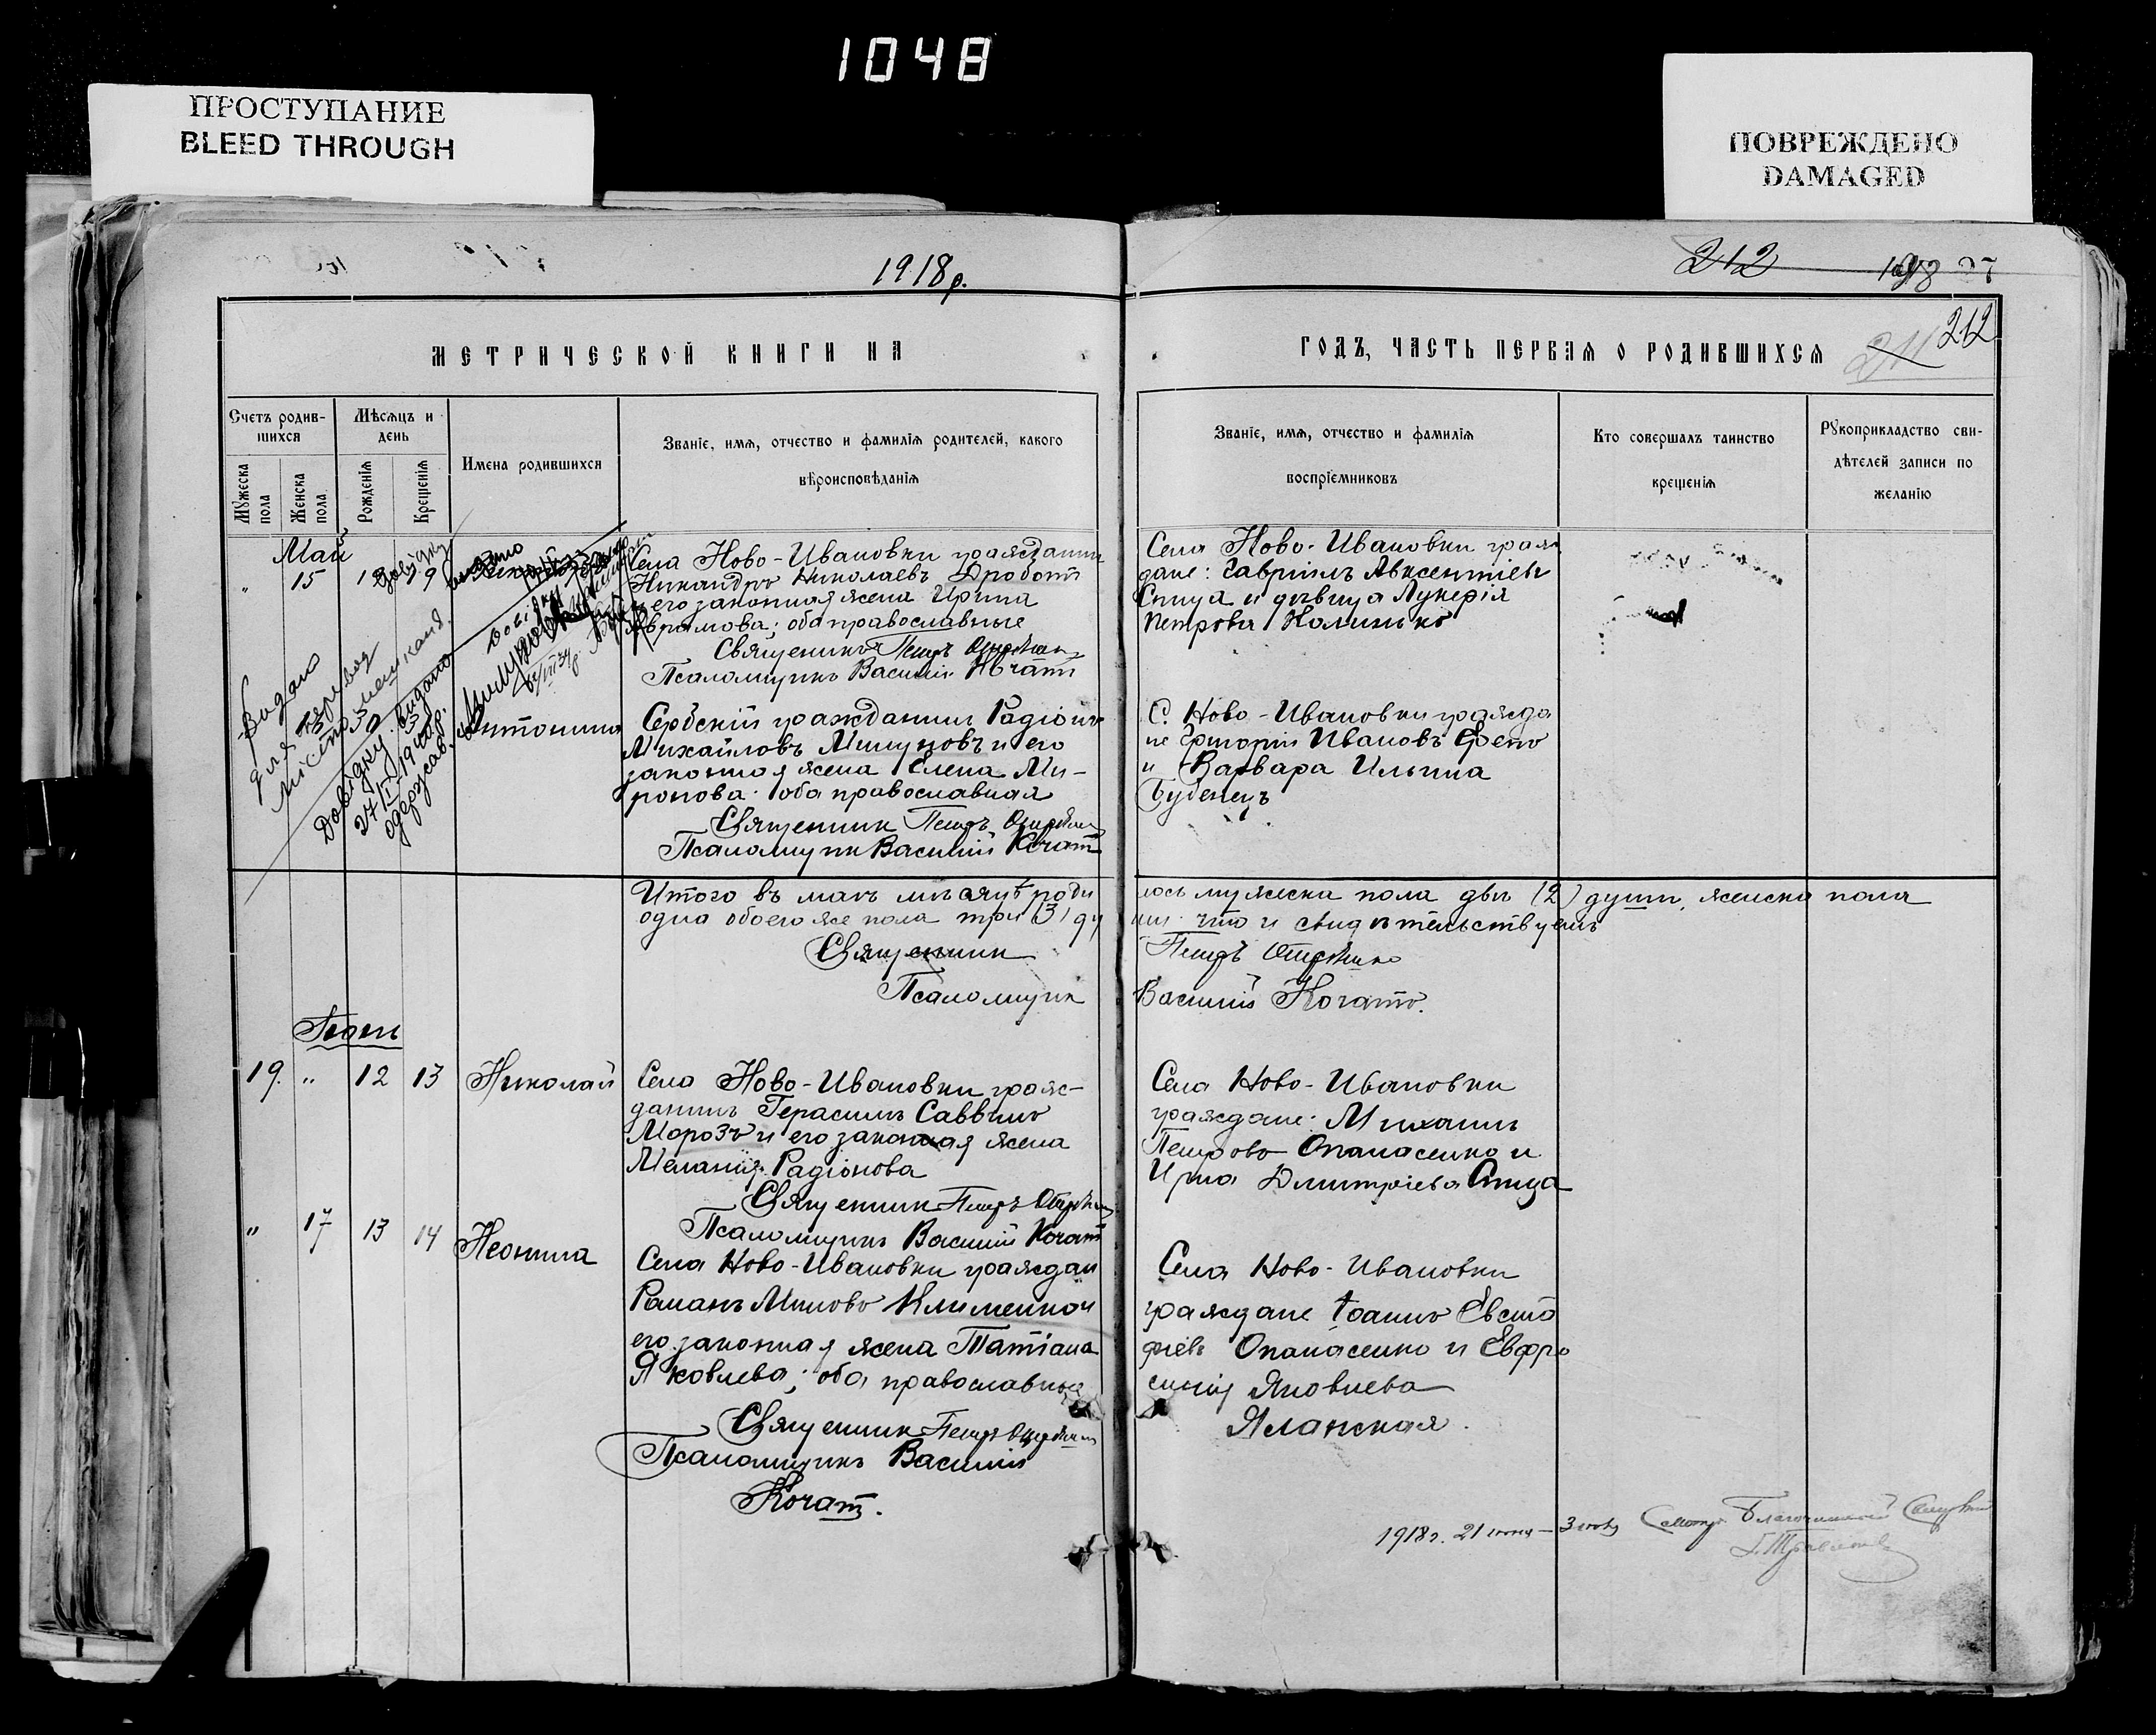 1048
ПРОСТУПАНИЕ
BLEED THROUGH
ПОВРЕЖДЕНО
DAMAGED
1918 р.
212
212
МЕТРИЧЕСКОЙ КНИГИ НА
ГОДЪ, ЧАСТЬ ПЕРВАЯ О РОДИВШИХСЯ
Счетъ родив-
шихся
Мѣсяцъ и
день
Мужеска
пола
Женска
пола.
Рожденія
Крещенія
Имена родившихся
Званіе, имя, отчество и фамилія родителей, какого
вѣроисповѣданія
Званіе, имя, отчество и фамилія
воспріемниковъ
Кто совершалъ таинство
крещенія
Рукоприкладство сви-
дѣтелей записи по
желанію
Май
" 15 19
Села Ново-Ивановки гражданин
Никандръ Николаевъ Дробот
и его законная жена Ирина
Аврамова; оба православные
Священникъ Петръ
Псаломщикъ Василій Кочат
Села Ново-Ивановки граж
дане: Гавріилъ Авксентіевъ
Спица и дѣвица Лукерія
Петрова Калинько
Видано
для
Довідку видано
27/II 1940 р.
одержав
Антонина
Сербскій гражданин Радіонъ
Михайловъ Мишуновъ и его
законная жена Елена Ми-
ронова: оба православная
Священник Петръ
Псаломщик Василій Кочат
С. Ново-Ивановки гражда
не Григорій Ивановъ
и Варвара Ильина
Бубенецъ
Итого въ маѣ мѣсяцѣ роди
лось мужеска пола двѣ (2) души, женска пола
одна обоего же пола три (3) ду
ши что и свидѣтельствуемъ
Священник
Петръ
Псаломщик
Василій Кочатъ.
Іюнь
19. " 12 13 Николай
Села Ново-Ивановки граж-
данинъ Герасимъ Саввинъ
Морозъ и его законная жена
Меланія Радіонова
Священник Петръ
Псаломщикъ Василій Кочат
Села Ново-Ивановки
граждане: Михаилъ
Петровъ Опанасенко и
Дмитріева Спица
" 17 13 14 Неонила
Села Ново-Ивановки граждан
Романъ Клименко и
его законная жена Татіана
Яковлева; оба православные
Священник Петръ
Псаломщикъ Василій
Кочат.
Села Ново-Ивановки
граждане Іоаннъ Евста
фіевъ Опанасенко и Евфро
синія Яковлева
Яланская.
1918 г. 21
Благочинный